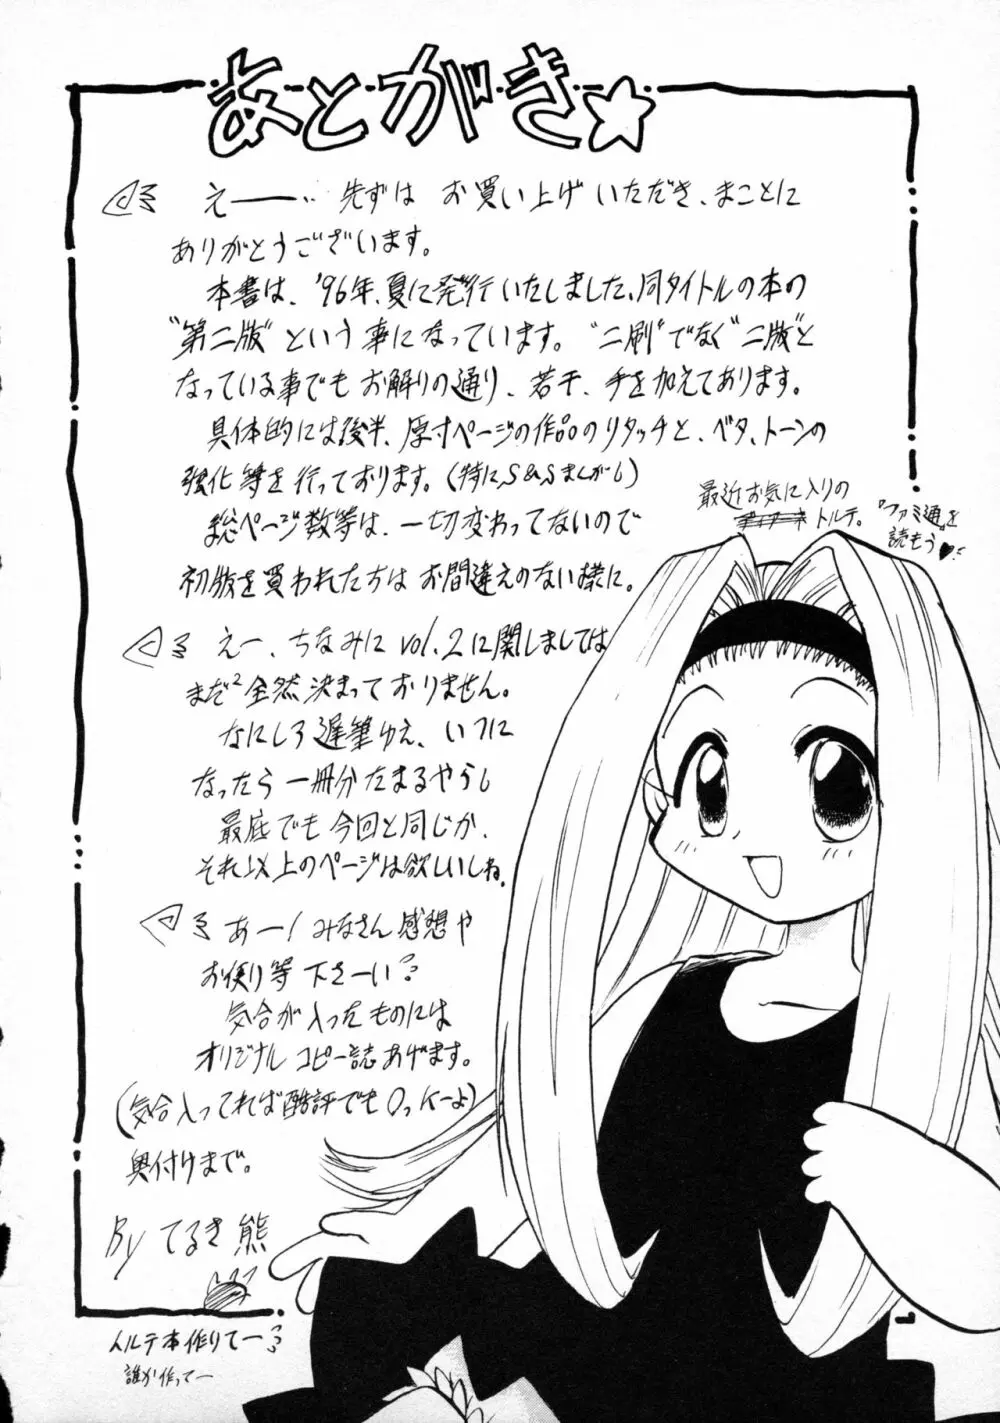 あとがき☆
えー―‥先ずは お買い上げいただき、まことに
ありがとうございます。
本書は、'96年、夏に発行いたしました、同タイトルの本の
"第二版"という事になっています。"二刷"でなく"二版"と
なっている事でもお解りの通り、若干、手を加えてあります。
具体的には後半、原寸ページの作品のリタッチと、ベタ、トーンの
強化等を行っております。(特にS&Sまんがし)
総ページ数等は、一切変わってないので
初版を買われた方は お間違えのない様に。
最近お気に入りの
トルテ。
『ファミ通』を
読もう♥
えー、ちなみにvol.2に関しましては
まだ²全然決まっておりません。
なにしろ遅筆ゆえ、いつに
なったら一冊分たまるやらし
最底でも今回と同じか、
それ以上のページは欲しいしね。
あー!みなさん感想や
お便り等下さーい?
気合が入ったものには
オリジナルコピー誌あげます。
(気合入ってれば酷評でもOっKーよ)
奥付けまで。
By てるき熊
トルテ本作りてー
誰か作ってー